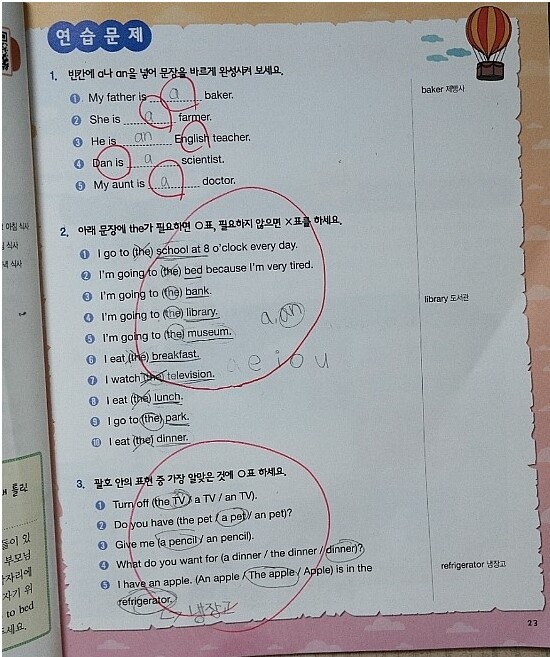 연습문제
1. 빈칸에 a나 an을 넣어 문장을 바르게 완성시켜 보세요.
1 My father is a baker.
2 She is a farmer.
3 He is an English teacher.
4 Dan is a scientist.
5 My aunt is a doctor.
baker 제빵사
2. 아래 문장에 the가 필요하면 O표, 필요하지 않으면 X표를 하세요.
1 I go to (the) school at 8 o'clock every day.
2 I'm going to (the) bed because I'm very tired.
3 I'm going to (the) bank.
4 I'm going to (the) library.
5 I'm going to (the) museum.
6 I eat (the) breakfast.
7 I watch (the) television.
8 I eat (the) lunch.
9 I go to (the) park.
10 I eat (the) dinner.
a, an
a e i o u
library 도서관
3. 괄호 안의 표현 중 가장 알맞은 것에 O표 하세요.
1 Turn off (the TV / a TV / an TV).
2 Do you have (the pet / a pet / an pet)?
3 Give me (a pencil / an pencil).
4 What do you want for (a dinner / the dinner / dinner)?
5 I have an apple. (An apple / The apple / Apple) is in the
refrigerator.
냉장고
refrigerator 냉장고
23
아침 식사
식사
녁 식사
틀린
들이 있
부모님
자리에
자기 위
to bed
세요.